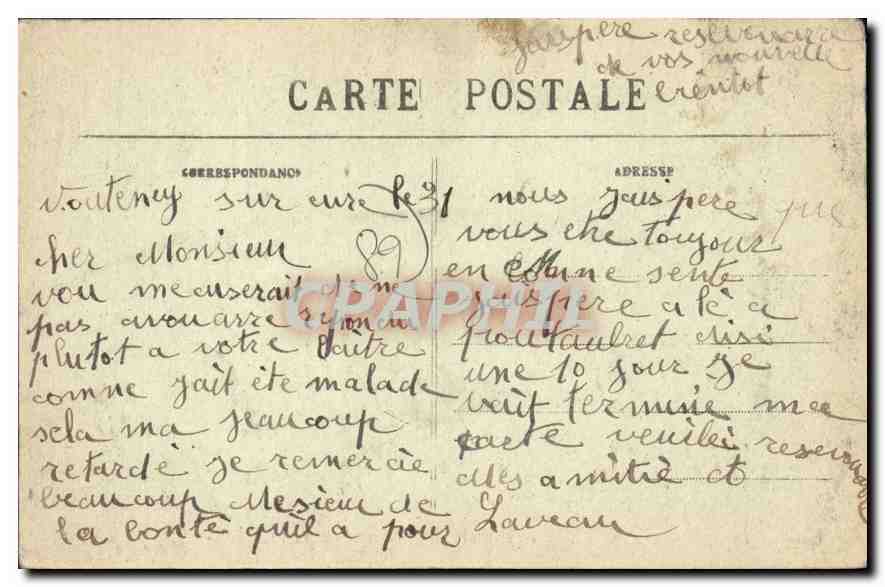 jaispere resevouare
de vos nouvelle
CARTE POSTALE
CORRESPONDANCE
Voutenay sur cure le 31
89
cher Monsieur
vou mecuserait de ne
pas avouarre repondu
plutot a votre laitre
comne jait ete malade
sela ma jeaucoup
retardé je remercie
beaucoup Mesieu de
la bonté quil a pour
ADRESSE
nous jaispere que
vous etre toujour
en bonne sente
jaispere alé a
pontaubret disi
une 10 jour je
vait termine ma
carte veuilé resevouare
des amitié et
Laveau
CPAPHIL